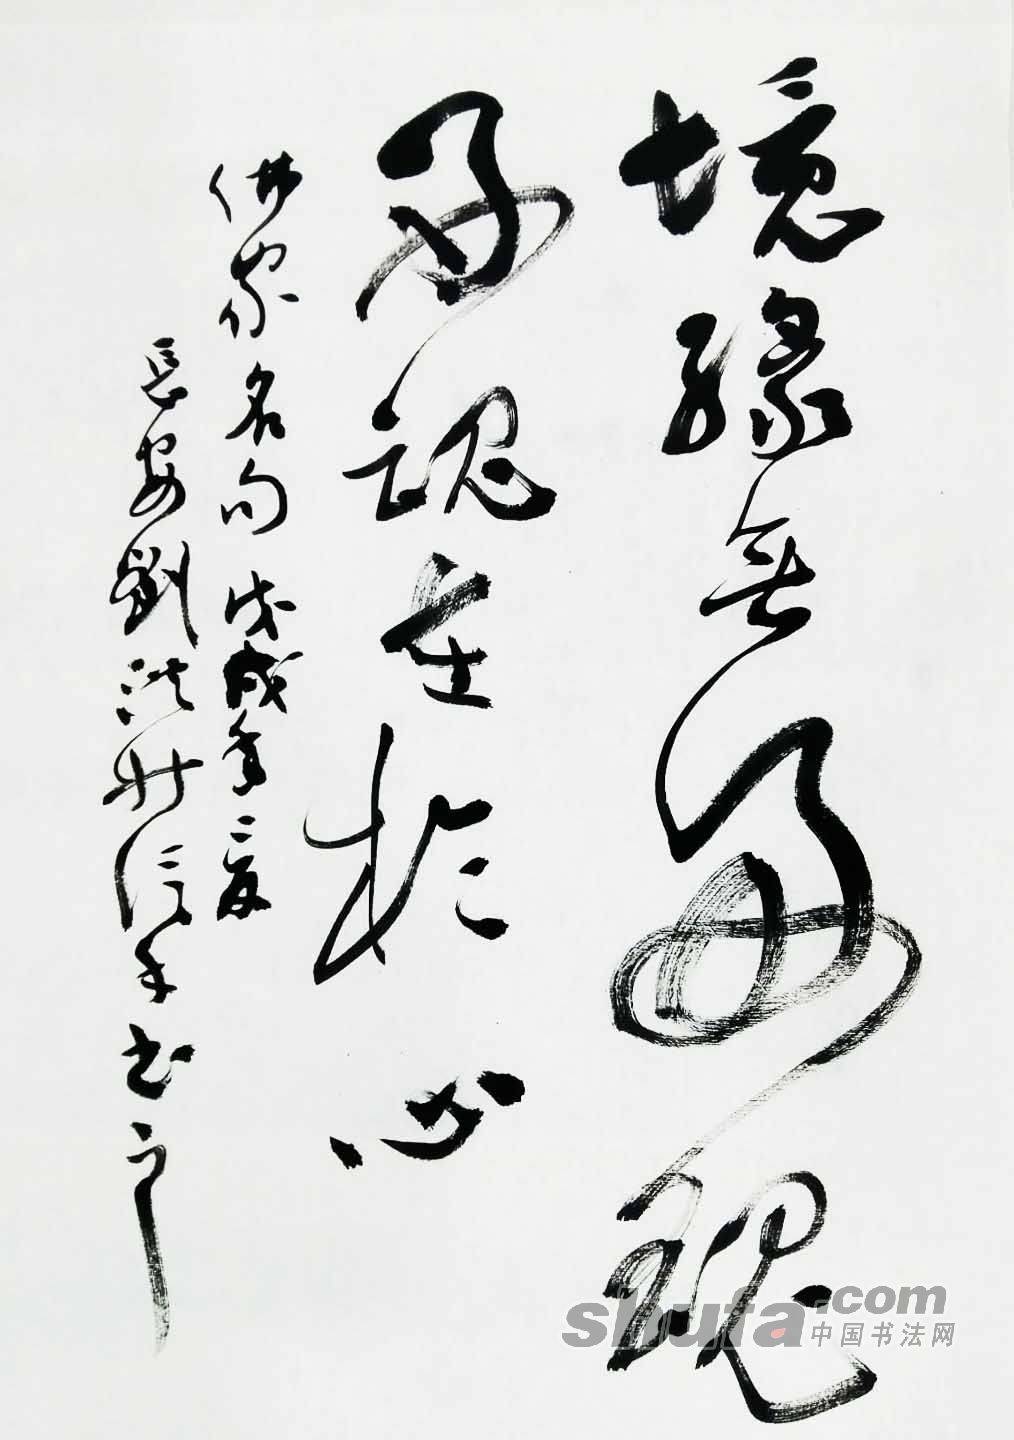 境緣無好醜
好醜在於心
佛家名句 戊戌年之夏
長安劉洪信手书
shufa.com
中国书法网